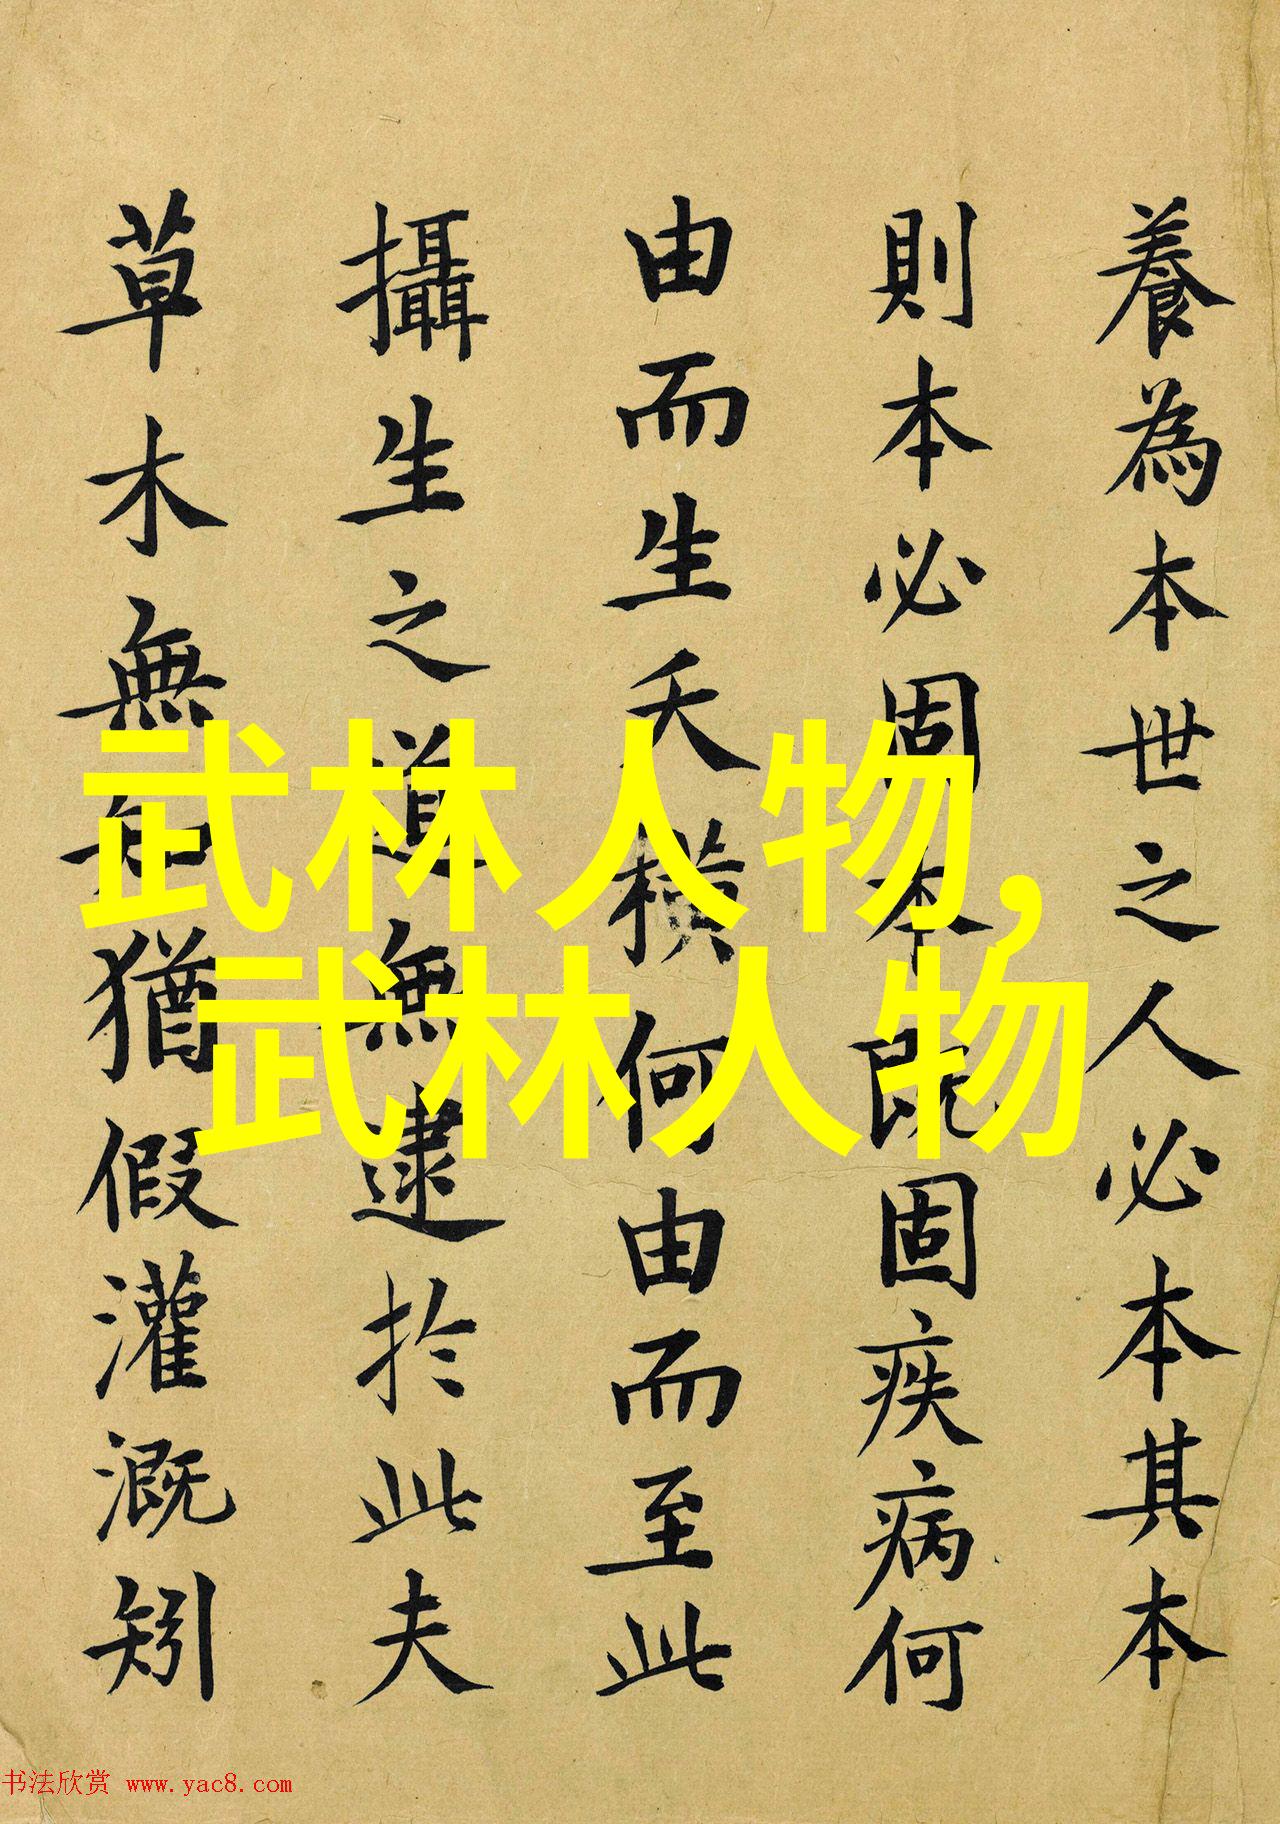 養為本世之人必本其本
則本必固本既固疾病何
由而生夭橫何由而至此
攝生之道無逮於此夫
草木無知猶假灌溉矧
武林人物,
武林人物
书法欣赏 www.yac8.com